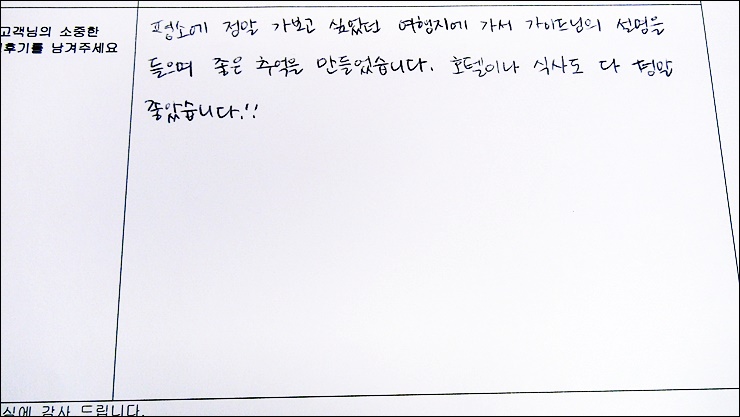 고객님의 소중한
후기를 남겨주세요
평소에 정말 가보고 싶었던 여행지에 가서 가이드님의 설명을
들으며 좋은 추억을 만들었습니다. 호텔이나 식사도 다 정말
좋았습니다!!
실에 감사 드립니다.